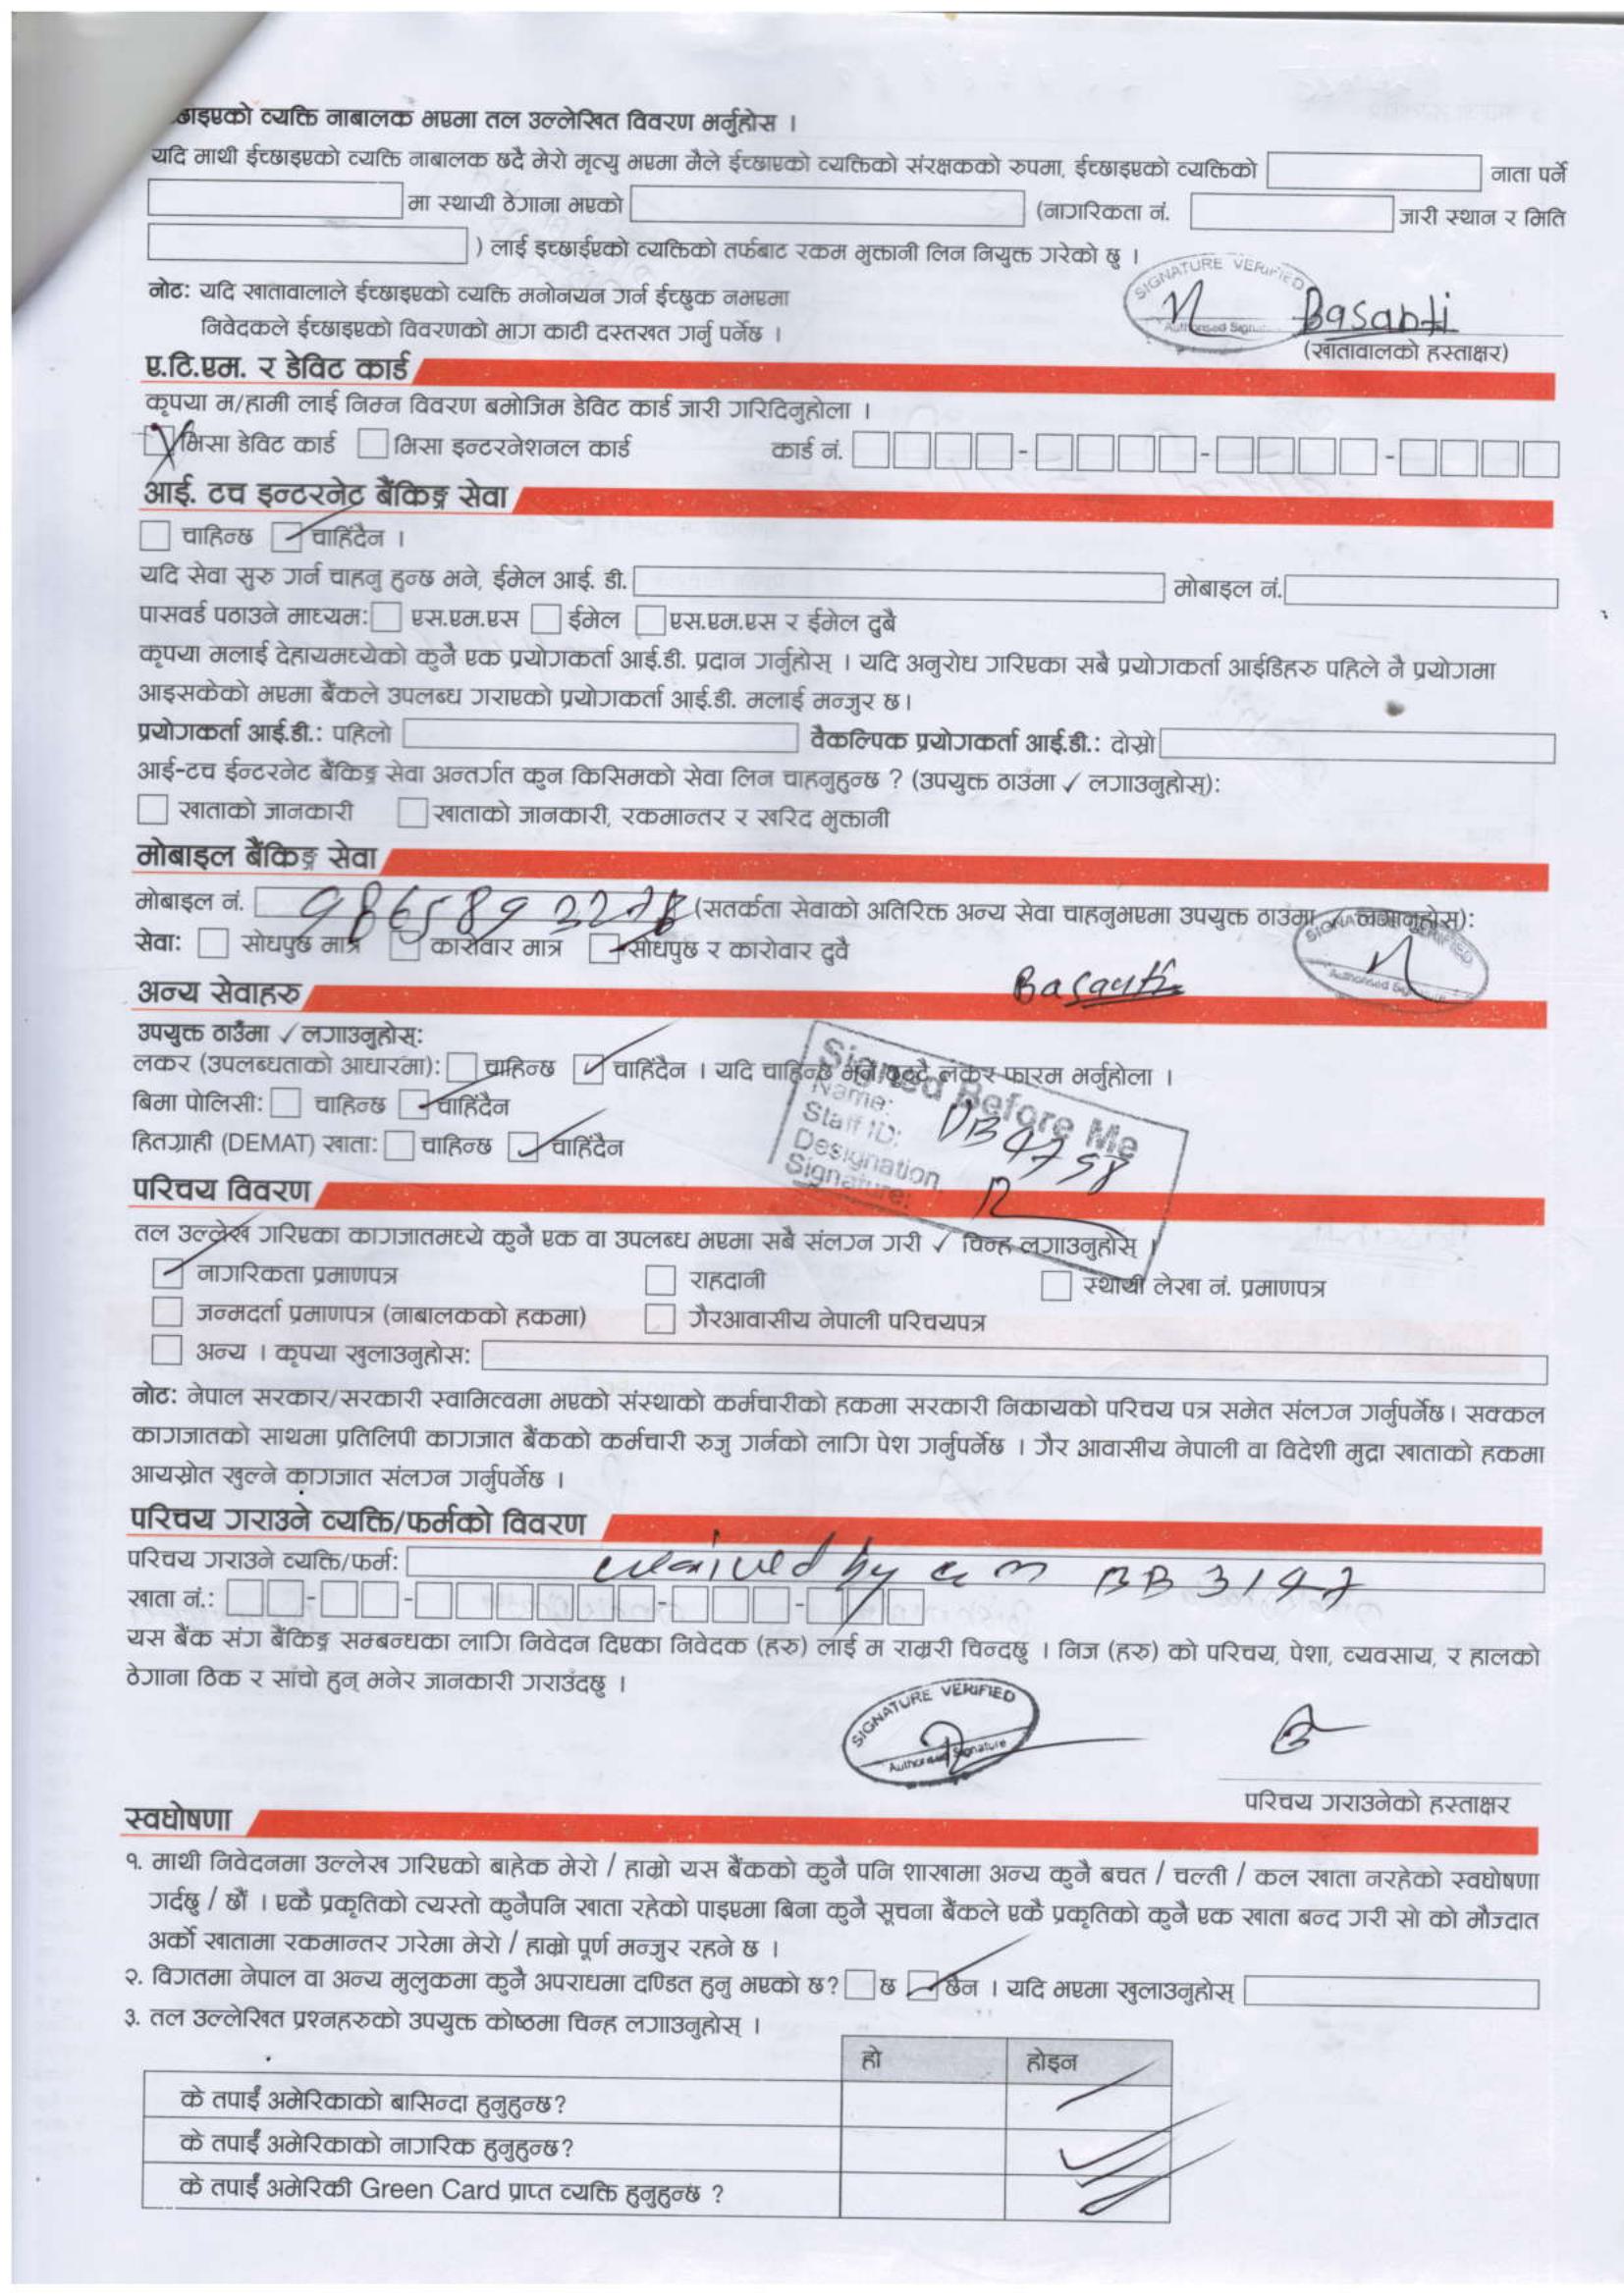 व्यक्ति नाबालक भएमा तल उल्लेखित विवरण भर्नुहोस ।
यदि माथी ईच्छाइएको व्यक्ति नाबालक छदै मेरो मृत्यु भएमा मैले ईच्छाएको व्यक्तिको संरक्षकको रुपमा, ईच्छाइएको व्यक्तिको नाता पर्ने
मा स्थायी ठेगाना भएको (नागरिकता नं. जारी स्थान र मिति
) लाई इच्छाईएको व्यक्तिको तर्फबाट रकम भुक्तानी लिन नियुक्त गरेको छु ।
SIGNATURE VERIFIED
नोट: यदि खातावालाले ईच्छाइएको व्यक्ति मनोनयन गर्न ईच्छुक नभएमा
Basanti
निवेदकले ईच्छाइएको विवरणको भाग काटी दस्तखत गर्नु पर्नेछ ।
(खातावालको हस्ताक्षर)
ए.टि.एम. र डेविट कार्ड
कृपया म/हामी लाई निम्न विवरण बमोजिम डेविट कार्ड जारी गरिदिनुहोला ।
भिसा डेविट कार्ड भिसा इन्टरनेशनल कार्ड कार्ड नं. - - -
आई. टच इन्टरनेट बैंकिङ्ग सेवा
चाहिन्छ चाहिंदैन ।
यदि सेवा सुरु गर्न चाहनु हुन्छ भने, ईमेल आई. डी. मोबाइल नं.
पासवर्ड पठाउने माध्यम: एस.एम.एस ईमेल एस.एम.एस र ईमेल दुबै
कृपया मलाई देहायमध्येको कुनै एक प्रयोगकर्ता आई.डी. प्रदान गर्नुहोस् । यदि अनुरोध गरिएका सबै प्रयोगकर्ता आईडिहरु पहिले नै प्रयोगमा
आइसकेको भएमा बैंकले उपलब्ध गराएको प्रयोगकर्ता आई.डी. मलाई मन्जुर छ।
प्रयोगकर्ता आई.डी.: पहिलो वैकल्पिक प्रयोगकर्ता आई.डी.: दोस्रो
आई-टच ईन्टरनेट बैंकिङ्ग सेवा अन्तर्गत कुन किसिमको सेवा लिन चाहनुहुन्छ ? (उपयुक्त ठाउंमा ✓ लगाउनुहोस्):
खाताको जानकारी खाताको जानकारी, रकमान्तर र खरिद भुक्तानी
मोबाइल बैंकिङ्ग सेवा
मोबाइल नं. (सतर्कता सेवाको अतिरिक्त अन्य सेवा चाहनुभएमा उपयुक्त ठाउंमा ✓ लगाउनुहोस्):
सेवा: सोधपुछ मात्र कारोवार मात्र सोधपुछ र कारोवार दुवै
Basanti
अन्य सेवाहरु
उपयुक्त ठाउँमा ✓ लगाउनुहोस्:
लकर (उपलब्धताको आधारमा): चाहिन्छ चाहिंदैन । यदि चाहिन्छ भने छुट्टै लकर फारम भर्नुहोला ।
बिमा पोलिसी: चाहिन्छ चाहिंदैन
हितग्राही (DEMAT) खाता: चाहिन्छ चाहिंदैन
Signed Before Me
Name:
Staff ID:
Designation
Signature:
परिचय विवरण
तल उल्लेख गरिएका कागजातमध्ये कुनै एक वा उपलब्ध भएमा सबै संलग्न गरी ✓ चिन्ह लगाउनुहोस् ।
नागरिकता प्रमाणपत्र राहदानी स्थायी लेखा नं. प्रमाणपत्र
जन्मदर्ता प्रमाणपत्र (नाबालकको हकमा) गैरआवासीय नेपाली परिचयपत्र
अन्य । कृपया खुलाउनुहोस:
नोट: नेपाल सरकार/सरकारी स्वामित्वमा भएको संस्थाको कर्मचारीको हकमा सरकारी निकायको परिचय पत्र समेत संलग्न गर्नुपर्नेछ। सक्कल
कागजातको साथमा प्रतिलिपी कागजात बैंकको कर्मचारी रुजु गर्नको लागि पेश गर्नुपर्नेछ । गैर आवासीय नेपाली वा विदेशी मुद्रा खाताको हकमा
आयस्रोत खुल्ने कागजात संलग्न गर्नुपर्नेछ ।
परिचय गराउने व्यक्ति/फर्मको विवरण
परिचय गराउने व्यक्ति/फर्म: by BB 3197
खाता नं.: - - - -
यस बैंक संग बैंकिङ्ग सम्बन्धका लागि निवेदन दिएका निवेदक (हरु) लाई म राम्ररी चिन्दछु । निज (हरु) को परिचय, पेशा, व्यवसाय, र हालको
ठेगाना ठिक र सांचो हुन् भनेर जानकारी गराउंदछु ।
SIGNATURE VERIFIED
Authorised Signature
परिचय गराउनेको हस्ताक्षर
स्वघोषणा
१. माथी निवेदनमा उल्लेख गरिएको बाहेक मेरो / हाम्रो यस बैंकको कुनै पनि शाखामा अन्य कुनै बचत / चल्ती / कल खाता नरहेको स्वघोषणा
गर्दछु / छौं । एकै प्रकृतिको त्यस्तो कुनैपनि खाता रहेको पाइएमा बिना कुनै सूचना बैंकले एकै प्रकृतिको कुनै एक खाता बन्द गरी सो को मौज्दात
अर्को खातामा रकमान्तर गरेमा मेरो / हाम्रो पूर्ण मन्जुर रहने छ ।
२. विगतमा नेपाल वा अन्य मुलुकमा कुनै अपराधमा दण्डित हुनु भएको छ? छ छैन । यदि भएमा खुलाउनुहोस्
३. तल उल्लेखित प्रश्नहरुको उपयुक्त कोष्ठमा चिन्ह लगाउनुहोस् ।
हो होइन
के तपाईं अमेरिकाको बासिन्दा हुनुहुन्छ?
के तपाईं अमेरिकाको नागरिक हुनुहुन्छ?
के तपाईं अमेरिकी Green Card प्राप्त व्यक्ति हुनुहुन्छ ?